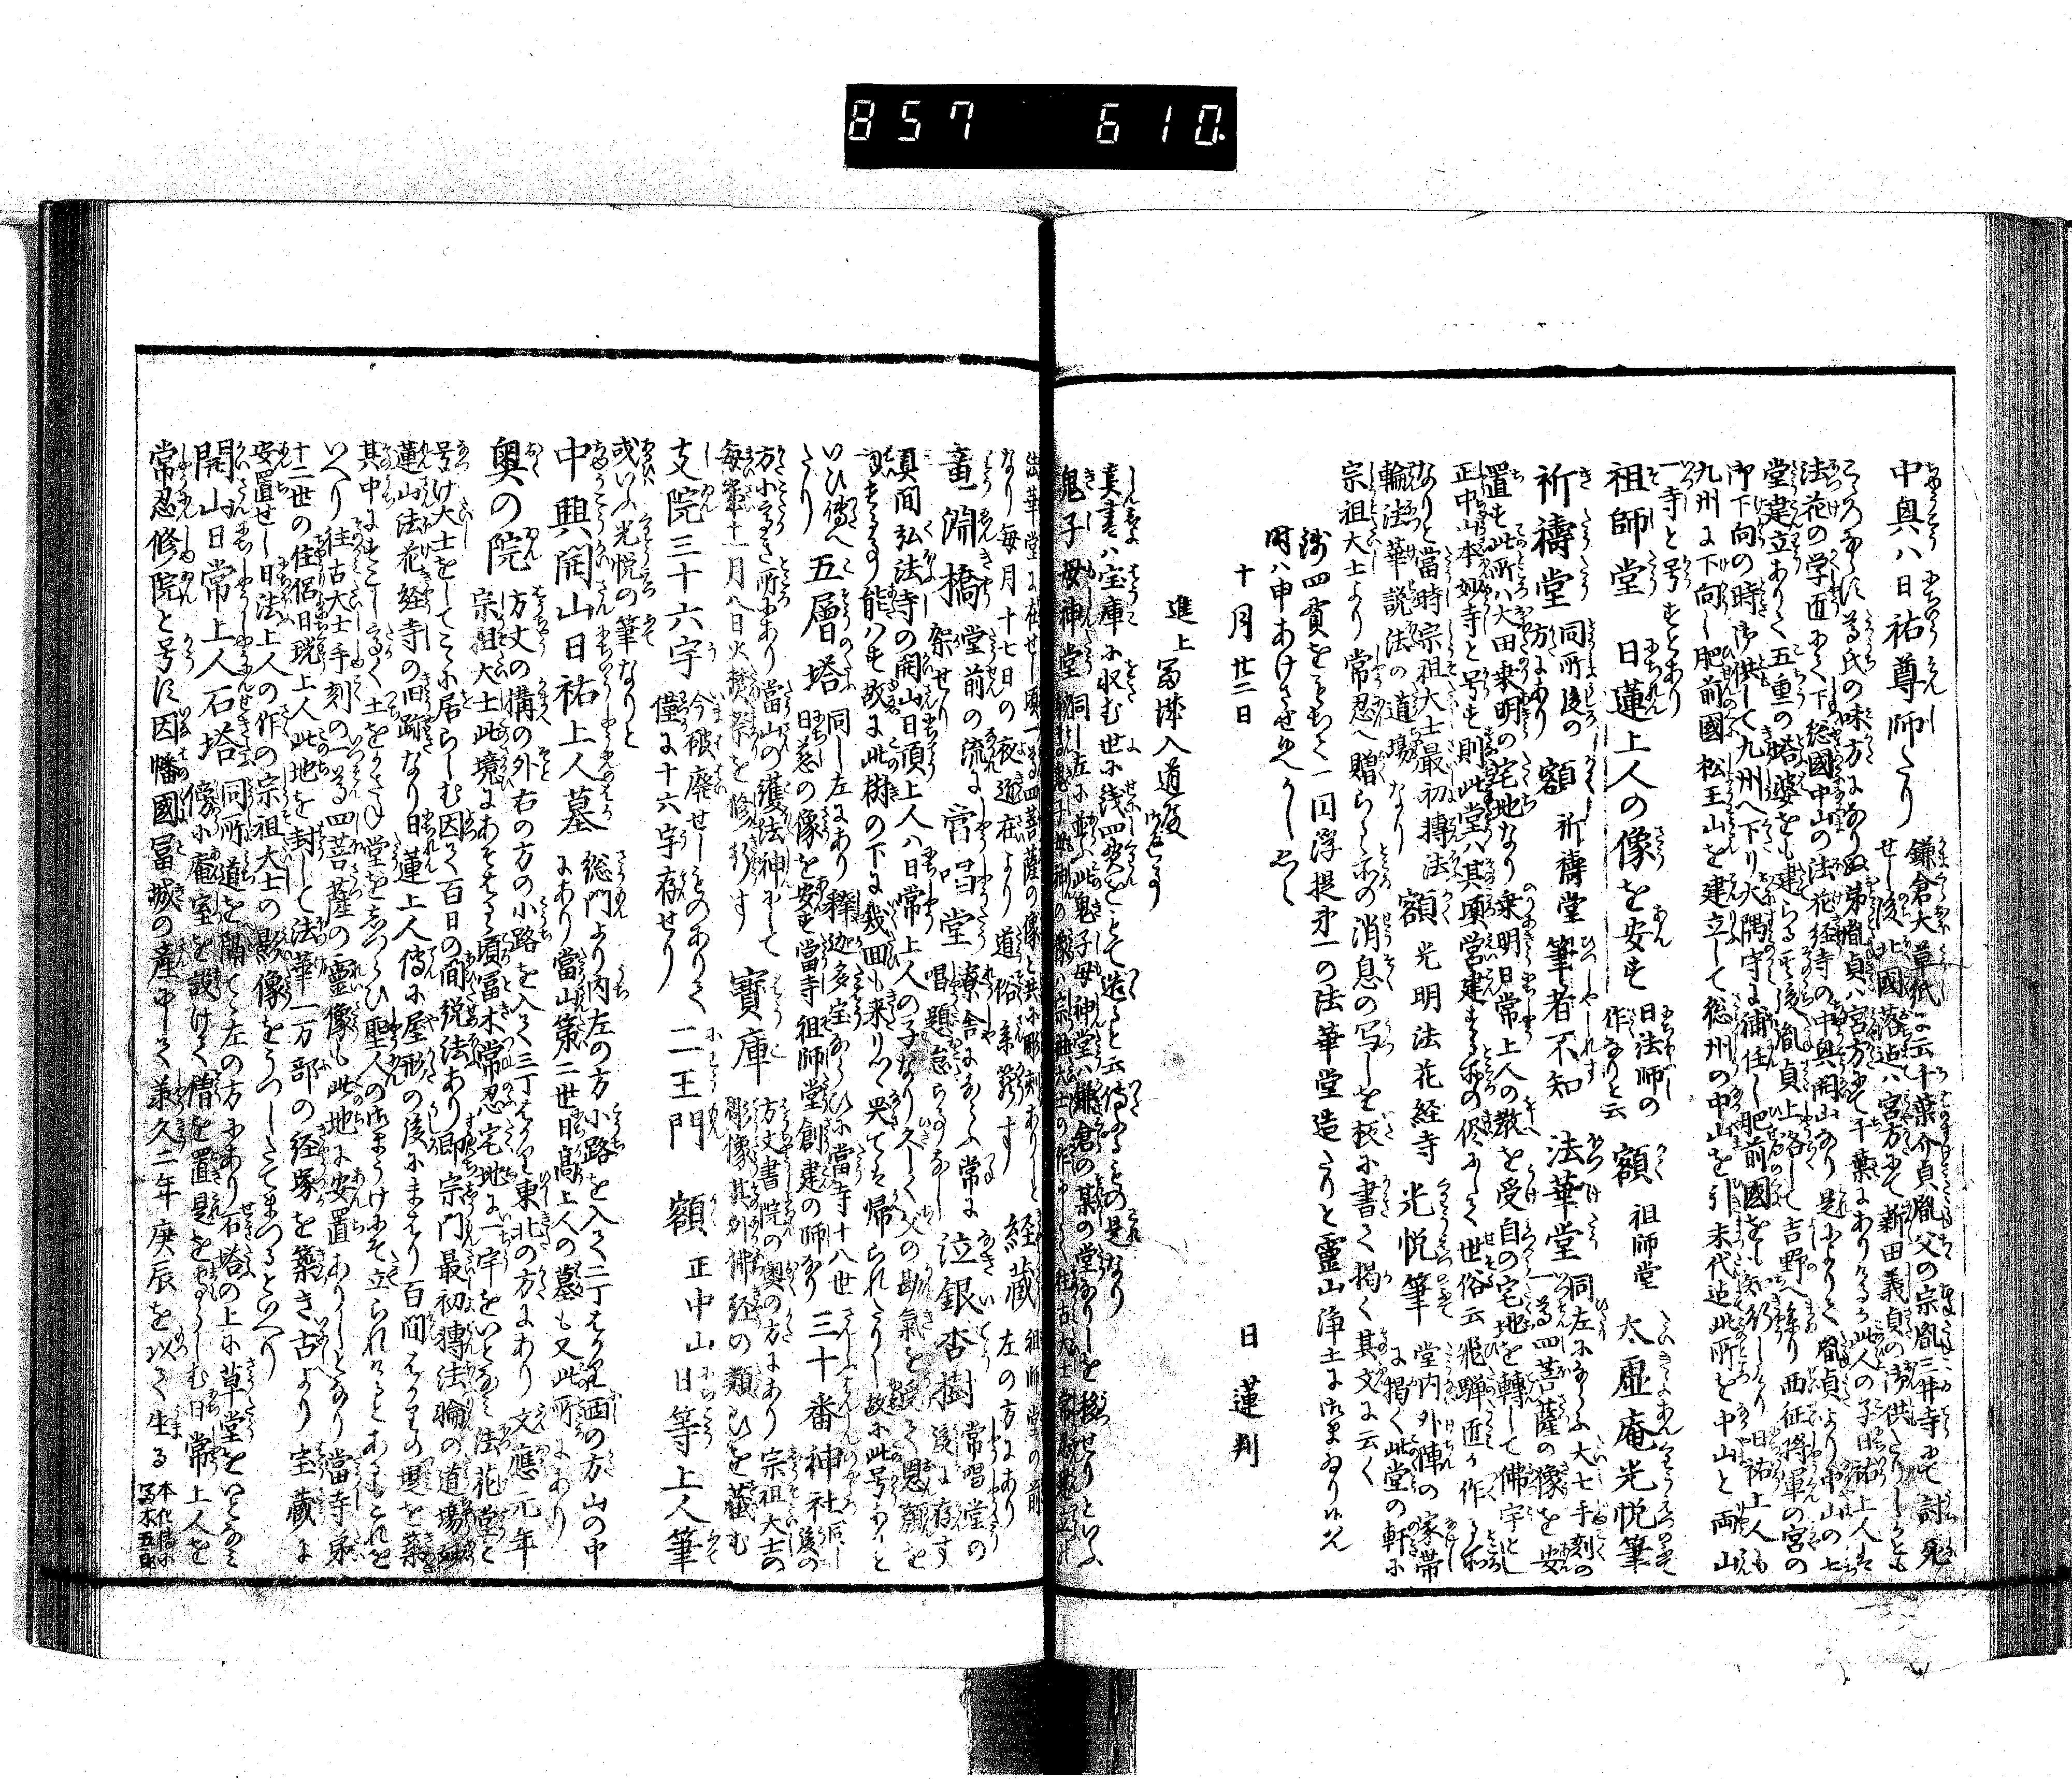 857 610
中興ハ日祐尊師なり 鎌倉大草紙に云千葉介貞胤父の宗胤三井寺にて討死
せし後北國落迄ハ宮方にて新田義貞の御供たりしかとも
こゝろならす尊氏の味方になりぬ弟胤貞ハ宮方にて千葉にありけるか此人の子日祐上人は
法花の学匠にて下総國中山の法花経寺の中興開山なり是によりて胤貞より中山の七
堂建立ありて五重の塔婆をも建らる其後胤貞上洛して吉野へ参り西征将軍の宮の
御下向の時御供して九州へ下り大隅守に補任し肥前國をも知行したり日祐上人も
九州に下向し肥前國松王山を建立して総州の中山を引末代迄此所を中山と両山
一寺と号すとあり
祖師堂 日蓮上人の像を安す 日法師の作なりと云 額 祖師堂 太虚庵光悦筆
祈禱堂 同所後の方にあり 額 祈禱堂 筆者不知 法華堂 同左にならふ大士手刻の一尊四菩薩の像を安
置す此所ハ大田乗明の宅地なり乗明日常上人の教を受自の宅地を轉して佛宇とし
正中山本妙寺と号す則此堂ハ其頃営建まゝの侭にして世俗云飛騨匠か作る所
なりと當時宗祖大士最初轉法輪法華説法の道場なり 額 光明法花経寺 光悦筆 堂内外陣の家帯に掲く此堂の軒に
宗祖大士より常忍へ贈らるゝ所の消息の写しを板に書て掲く其文に云く
銭四貫をもちて一閻浮提第一の法華堂造たりと靈山浄土に御まゐり候ハん
時ハ申あけさせ給へかしく
十月廿二日 日蓮判
進上 冨木入道殿
真書ハ宝庫に収む世に銭四貫をもて造ると云傳ふるもの是なり
鬼子母神堂 同し左に並ふ此鬼子母神堂ハ鎌倉の某の堂なりしを移せりといふ
出華堂に在せし頃一尊四菩薩の像と共に彫刻ありしと
なり毎月十七日の夜近在より道俗参籠す 経蔵 祖師堂の前左の方にあり
畫淵橋 堂前の流に架せり 常唱堂 寮舎にならふ常に唱題怠らすなし 泣銀杏樹 常唱堂の後に存す
真間弘法寺の開山日頂上人ハ日常上人の子なり久しく父の勘氣を受て恩顔を
拝する事能ハす故に此樹の下に幾回も来りて哭てそ帰られたりし故に此号ありと
いひ傳へたり 五層塔 同し左にあり釋迦多宝ならひに當寺十八世日慈の像を安す當寺祖師堂創建の師なり 三十番神社 同し後の
方小高き所にあり當山の護法神にして毎歳十一月八日火焚祭を修行す 寳庫 方丈書院の奥の方にあり宗祖大士の彫像其外佛経の類ひを蔵む
支院三十六宇 今破廃せしものありて僅に十六宇存せり 二王門 額 正中山 日等上人筆
或いふ光悦の筆なりと
中興開山日祐上人墓 総門より内左の方小路を入て二丁はかり西の方山の中にあり當山第二世日高上人の墓も又此所にあり
奥の院 方丈の構の外右の方の小路を入て三丁はかり東北の方にあり文應元年
宗祖大士此境にあそはるゝ頃冨木常忍宅地に一宇をいとなみ法花堂と
号け大士をしてこゝに居らしむ因て百日の間説法あり即宗門最初轉法輪の道場妙
蓮山法花経寺の旧跡なり日蓮上人傳に屋形の後にあたり百間はかりの奥を築
其中にすこし高く土をかさね堂をしつらひ聖人の御まうけにそ立られけるとあるもこれを
いへり 往古大士手刻の一尊四菩薩の靈像も此地に安置ありしとなり當寺第
十二世の住侶日珖上人此地を封して法華一万部の経塚を築き古より宝蔵に
安置せし日法上人の作の宗祖大士の影像をうつしたてまつるといへり
開山日常上人石塔 同所道を隔てゝ左の方にあり石塔の上に草堂をいとなみ
傍に庵室を設けて僧を置是をまもらしむ日常上人を
常忍修院と号す因幡國冨城の産にして兼久二年庚辰を以て生る 本化傳に冨木五郎